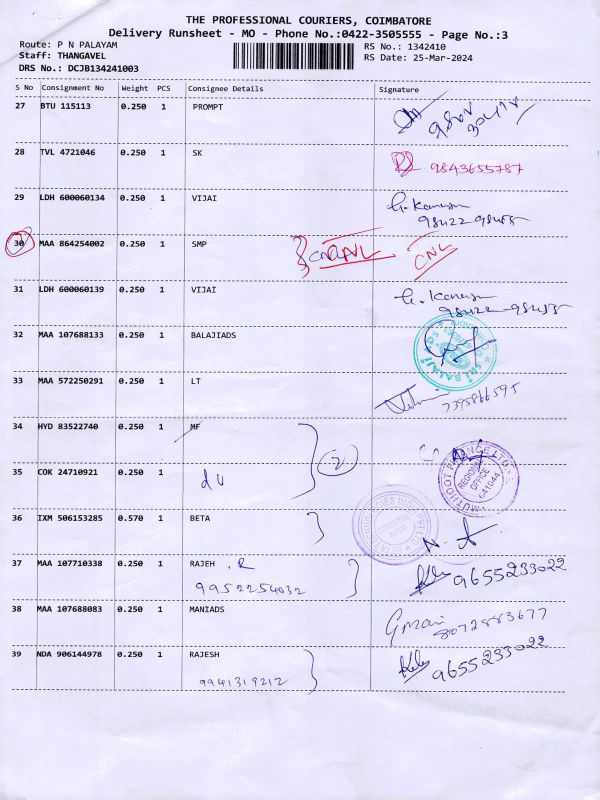 THE PROFESSIONAL COURIERS, COIMBATORE
Delivery Runsheet - MO - Phone No.:0422-3505555 - Page No.:3
Route: P N PALAYAM RS No.: 1342410
Staff: THANGAVEL RS Date: 25-Mar-2024
DRS No.: DCJB134241003
S No Consignment No Weight PCS Consignee Details Signature
27 BTU 115113 0.250 1 PROMPT
28 TVL 4721046 0.250 1 SK 9843655787
29 LDH 600060134 0.250 1 VIJAI
98422-98455
30 MAA 864254002 0.250 1 SMP CNL CNL
31 LDH 600060139 0.250 1 VIJAI
98422-98455
32 MAA 107688133 0.250 1 BALAJIADS
33 MAA 572250291 0.250 1 LT 7395866595
34 HYD 83522740 0.250 1 MF
2
35 COK 24710921 0.250 1
MUTHOOT FINANCE LTD.
REGIONAL
OFFICE
641044
36 IXM 506153285 0.570 1 BETA
37 MAA 107710338 0.250 1 RAJEH . R
9952254032 9655233022
38 MAA 107688083 0.250 1 MANIADS
8072883677
39 NDA 906144978 0.250 1 RAJESH 9655233022
9941319212